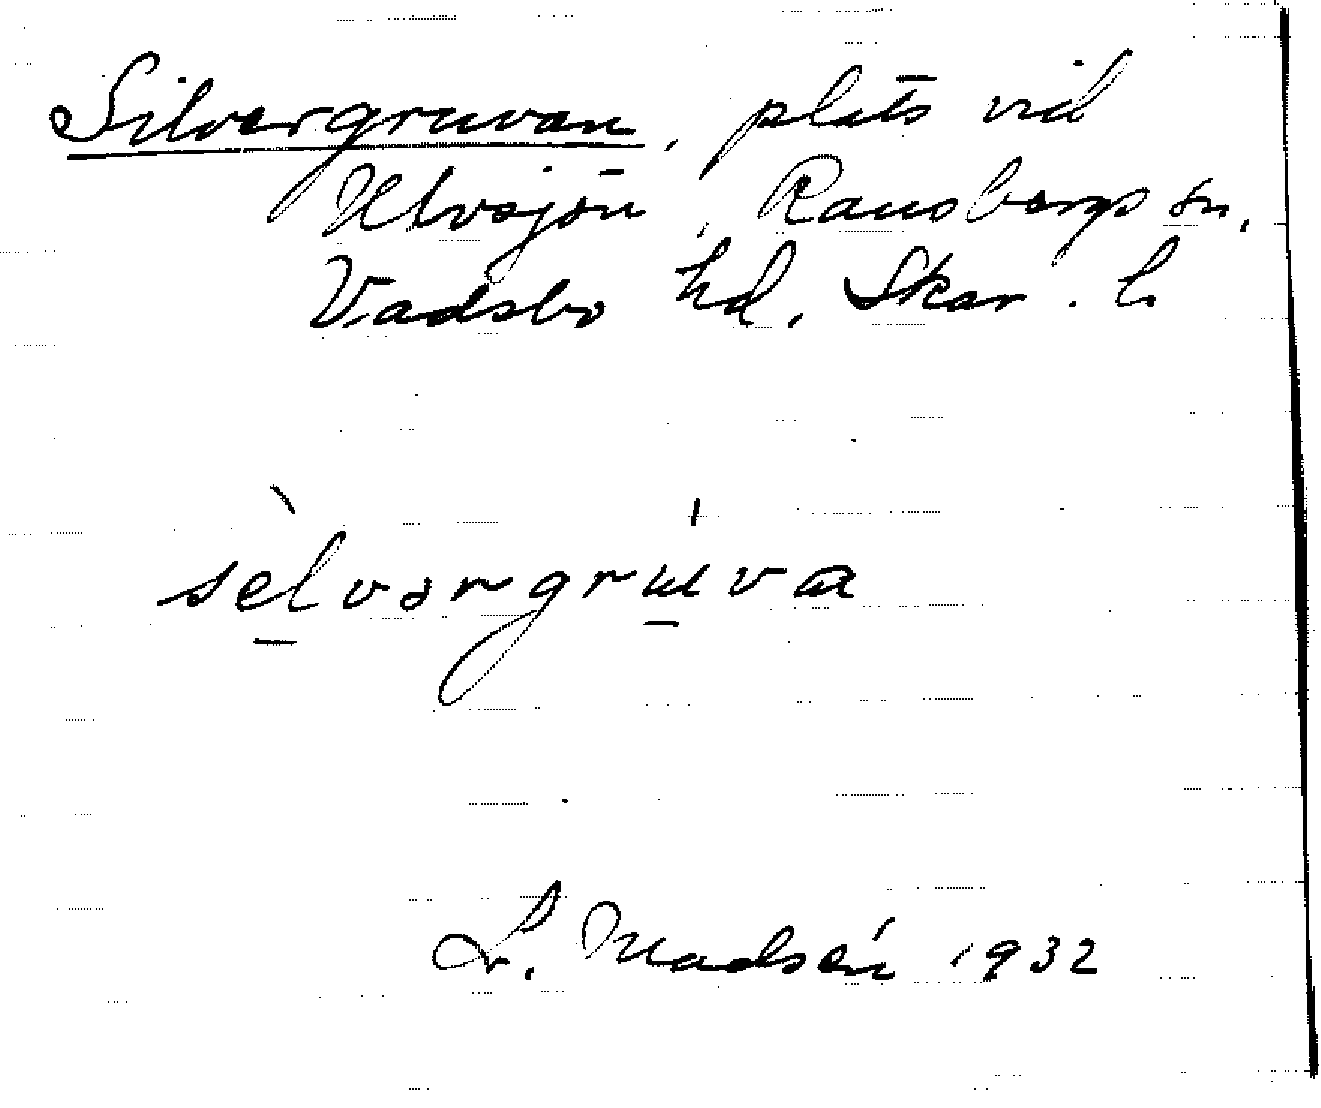 Silvergruvan, plats vid
Ulvsjön, Ransbergs sn,
Vadsbo hd, Skar. l.
sèlvərgru̍va
L. Madsén 1932